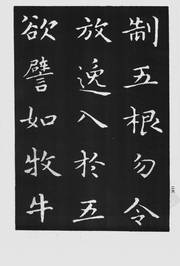 制五根勿令
放逸入於五
欲譬如牧牛